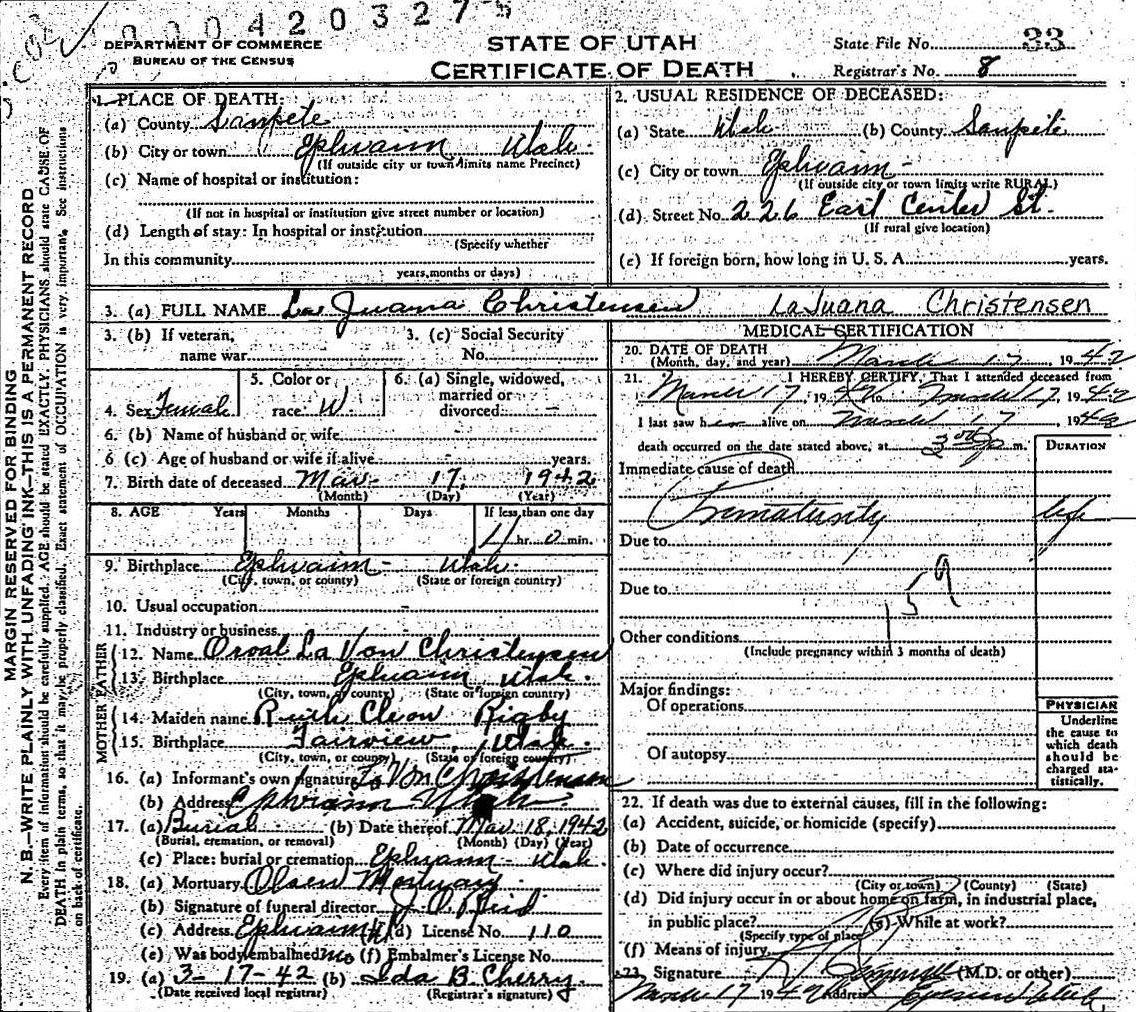 000420327
DEPARTMENT OF COMMERCE
BUREAU OF THE CENSUS
STATE OF UTAH
CERTIFICATE OF DEATH
State File No. 33
Registrar's No. 8
MARGIN RESERVED FOR BINDING
N. B.—WRITE PLAINLY WITH UNFADING INK—THIS IS A PERMANENT RECORD
Every item of information should be carefully supplied. AGE should be stated EXACTLY. PHYSICIANS should state CAUSE OF
DEATH in plain terms, so that it may be properly classified. Exact statement of OCCUPATION is very important. See instructions
on back of certificate.
1. PLACE OF DEATH:
(a) County Sanpete
(b) City or town Ephraim Utah.
(If outside city or town limits name Precinct)
(c) Name of hospital or institution:
(If not in hospital or institution give street number or location)
(d) Length of stay: In hospital or institution
(Specify whether
In this community
years, months or days)
2. USUAL RESIDENCE OF DECEASED:
(a) State Utah (b) County Sanpete
(c) City or town Ephraim -
(If outside city or town limits write RURAL)
(d) Street No. 226 East Center St.
(If rural give location)
(e) If foreign born, how long in U. S. A. years.
3. (a) FULL NAME La Juana Christensen LaJuana Christensen
3. (b) If veteran, name war
3. (c) Social Security No.
4. Sex Female
5. Color or race W.
6. (a) Single, widowed, married or divorced -
6. (b) Name of husband or wife
6 (c) Age of husband or wife if alive years.
7. Birth date of deceased Mar- 17, 1942
(Month) (Day) (Year)
8. AGE Years Months Days If less than one day
hr. 0 min.
9. Birthplace Ephraim - Utah.
(City, town, or county) (State or foreign country)
10. Usual occupation -
11. Industry or business
FATHER
12. Name Orval La Von Christensen
13. Birthplace Ephraim Utah.
(City, town, or county) (State or foreign country)
MOTHER
14. Maiden name Ruth Cleon Rigby
15. Birthplace Fairview, Utah.
(City, town, or county) (State or foreign country)
16. (a) Informant's own signature La Von Christensen
(b) Address Ephraim Utah
17. (a) Burial (b) Date thereof Mar. 18, 1942
(Burial, cremation, or removal) (Month) (Day) (Year)
(c) Place: burial or cremation Ephraim - Utah.
18. (a) Mortuary Olsen Mortuary
(b) Signature of funeral director
(c) Address Ephraim (d) License No. 110
(e) Was body embalmed no (f) Embalmer's License No.
19. (a) 3-17-42 (b) Ida B. Cherry
(Date received local registrar) (Registrar's signature)
MEDICAL CERTIFICATION
20. DATE OF DEATH
(Month, day, and year) March 17, 1942
21. I HEREBY CERTIFY, That I attended deceased from
March 17, 1942 to March 17, 1942
I last saw her alive on March 17 1942
death occurred on the date stated above, at 3:00 p m.
DURATION
Immediate cause of death
Prematurity life
Due to
Due to
159
Other conditions
(Include pregnancy within 3 months of death)
Major findings:
Of operations
Of autopsy
PHYSICIAN
Underline
the cause to
which death
should be
charged sta-
tistically.
22. If death was due to external causes, fill in the following:
(a) Accident, suicide, or homicide (specify)
(b) Date of occurrence
(c) Where did injury occur?
(City or town) (County) (State)
(d) Did injury occur in or about home on farm, in industrial place,
in public place? (e) While at work?
(Specify type of place)
(f) Means of injury
23. Signature (M.D. or other)
March 17 1942 Address Ephraim Utah